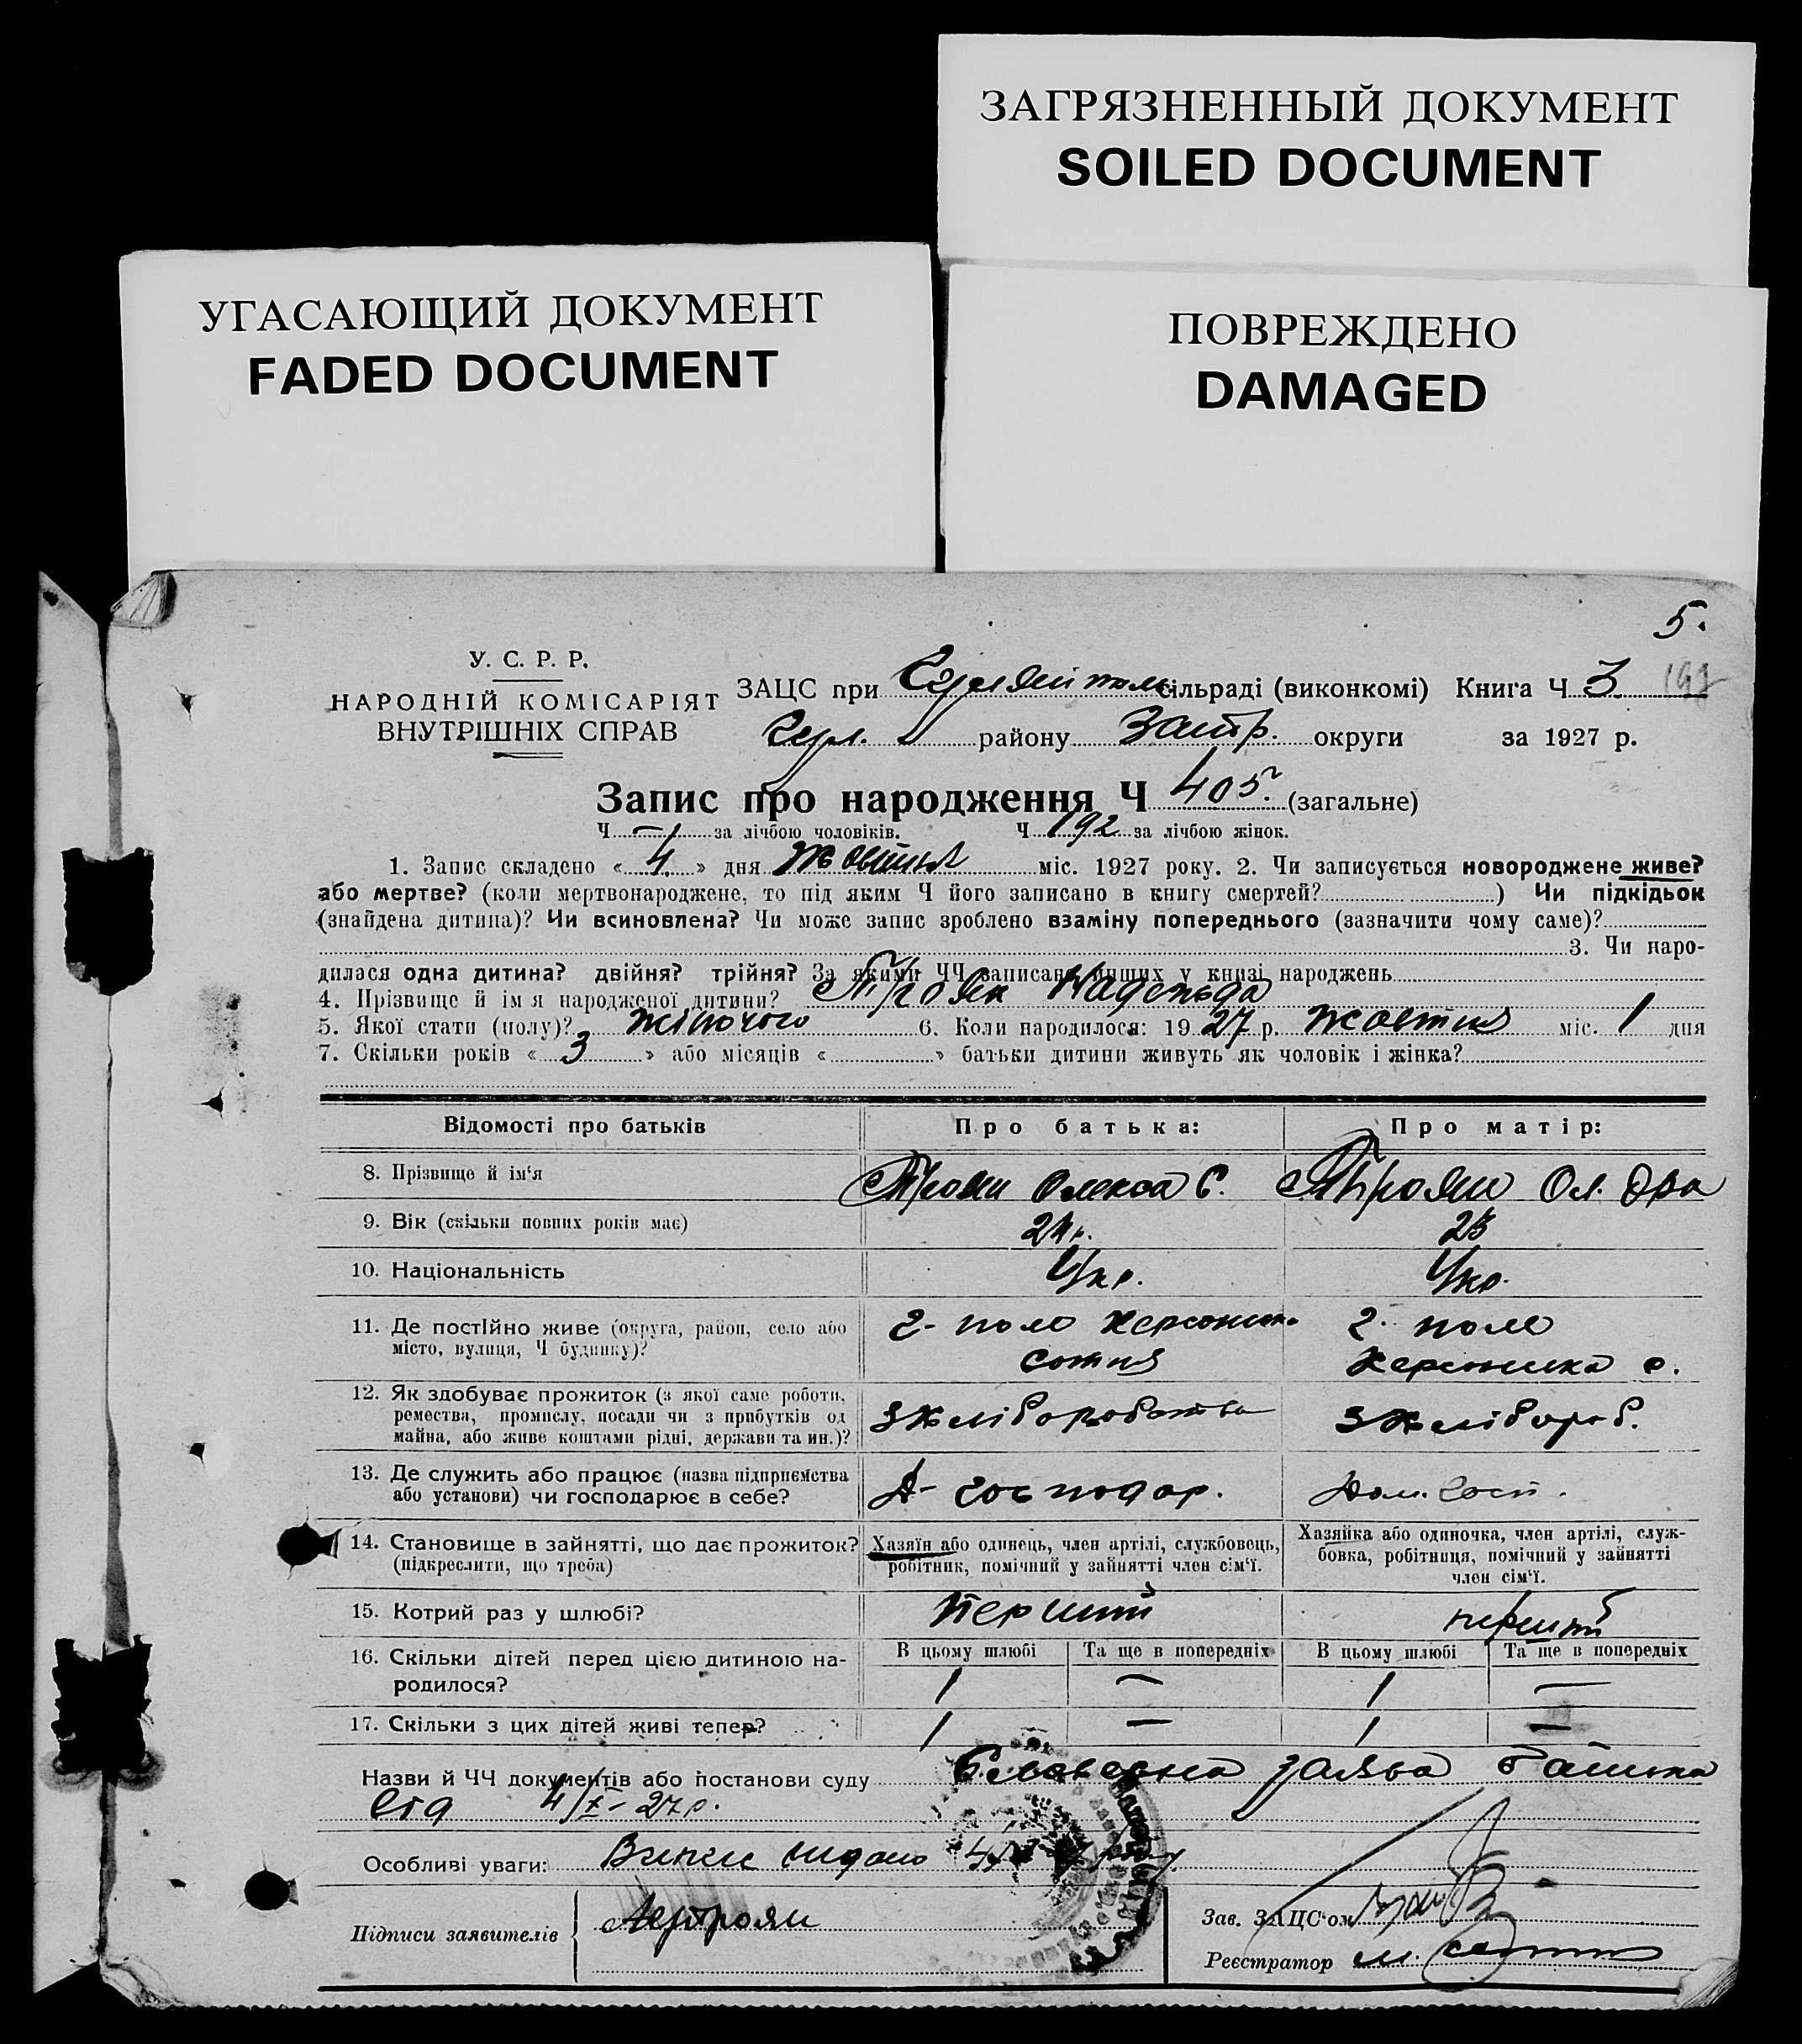 ЗАГРЯЗНЕННЫЙ ДОКУМЕНТ
SOILED DOCUMENT
УГАСАЮЩИЙ ДОКУМЕНТ
FADED DOCUMENT
ПОВРЕЖДЕНО
DAMAGED
5.
У. С. Р. Р.
НАРОДНІЙ КОМІСАРІЯТ
ВНУТРІШНІХ СПРАВ
ЗАЦС при сільраді (виконкомі) Книга Ч 3
району Запр. округи за 1927 р.
Запис про народження Ч 405. (загальне)
Ч — за лічбою чоловіків. Ч 192 за лічбою жінок.
1. Запис складено « 4 » дня Жовтня міс. 1927 року. 2. Чи записується новороджене живе?
або мертве? (коли мертвонароджене, то під яким Ч його записано в книгу смертей? ) Чи підкідьок
(знайдена дитина)? Чи всиновлена? Чи може запис зроблено взаміну попереднього (зазначити чому саме)?
3. Чи наро-
дилася одна дитина? двійня? трійня? За якими ЧЧ записано инших у книзі народжень
4. Прізвище й ім я народженої дитини? Троян Надежда
5. Якої стати (полу)? жіночого 6. Коли народилося: 19 27 р. жовтня міс. 1 дня
7. Скільки років « 3 » або місяців « » батьки дитини живуть як чоловік і жінка?
Відомості про батьків Про батька: Про матір:
8. Прізвище й ім'я Троян Олекса С. Троян Ол. дра
9. Вік (скільки повних років має) 24 р. 23
10. Національність Укр. Укр.
11. Де постійно живе (округа, район, село або місто, вулиця, Ч будинку)? Г- поле Херсонська сотня Г. поле Херсонська с.
12. Як здобуває прожиток (з якої саме роботи, ремества, промислу, посади чи з прибутків од майна, або живе коштами рідні, держави та ин.)? З хліборобства З хлібороб.
13. Де служить або працює (назва підприємства або установи) чи господарює в себе? Д- господар. Дом. госп.
14. Становище в зайнятті, що дає прожиток? (підкреслити, що треба) Хазяїн або одинець, член артілі, службовець, робітник, помічний у зайнятті член сім'ї. Хазяйка або одиночка, член артілі, служ-бовка, робітниця, помічний у зайнятті член сім'ї.
15. Котрий раз у шлюбі? Перший перший
16. Скільки дітей перед цією дитиною на-родилося? В цьому шлюбі Та ще в попередніх В цьому шлюбі Та ще в попередніх
1 — 1 —
17. Скільки з цих дітей живі тепер? 1 — 1 —
Назви й ЧЧ документів або постанови суду Словесна заява батька
від 4/X - 27 р.
Особливі уваги: Випис видано
Підписи заявителів
Зав. ЗАЦС'ом
Реєстратор М.